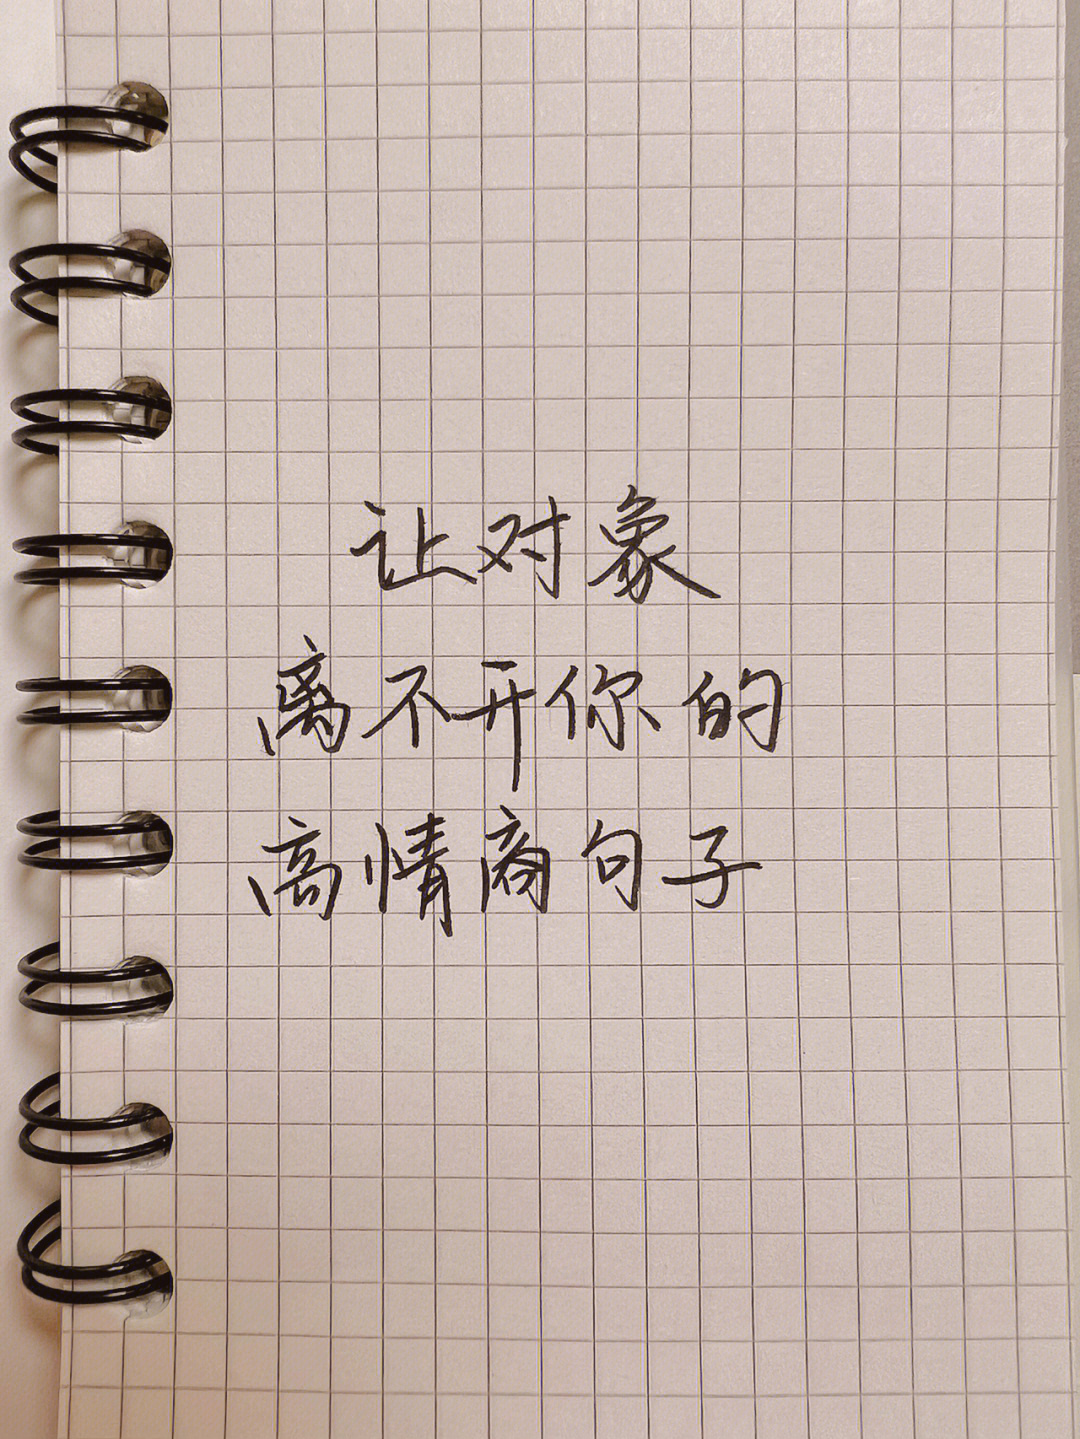 让对象
离不开你的
高情商句子